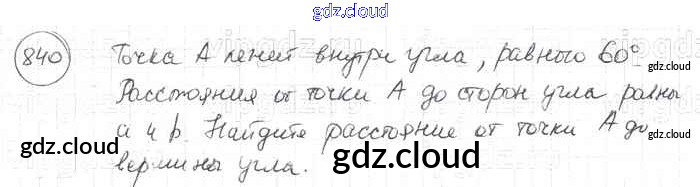 gdz.cloud
840 Точка А лежит внутри угла, равного 60°.
gdz.cloud
Расстояния от точки А до сторон угла равны
а и b. Найдите расстояние от точки А до
gdz.cloud
gdz.cloud gdz.cloud
вершины угла.